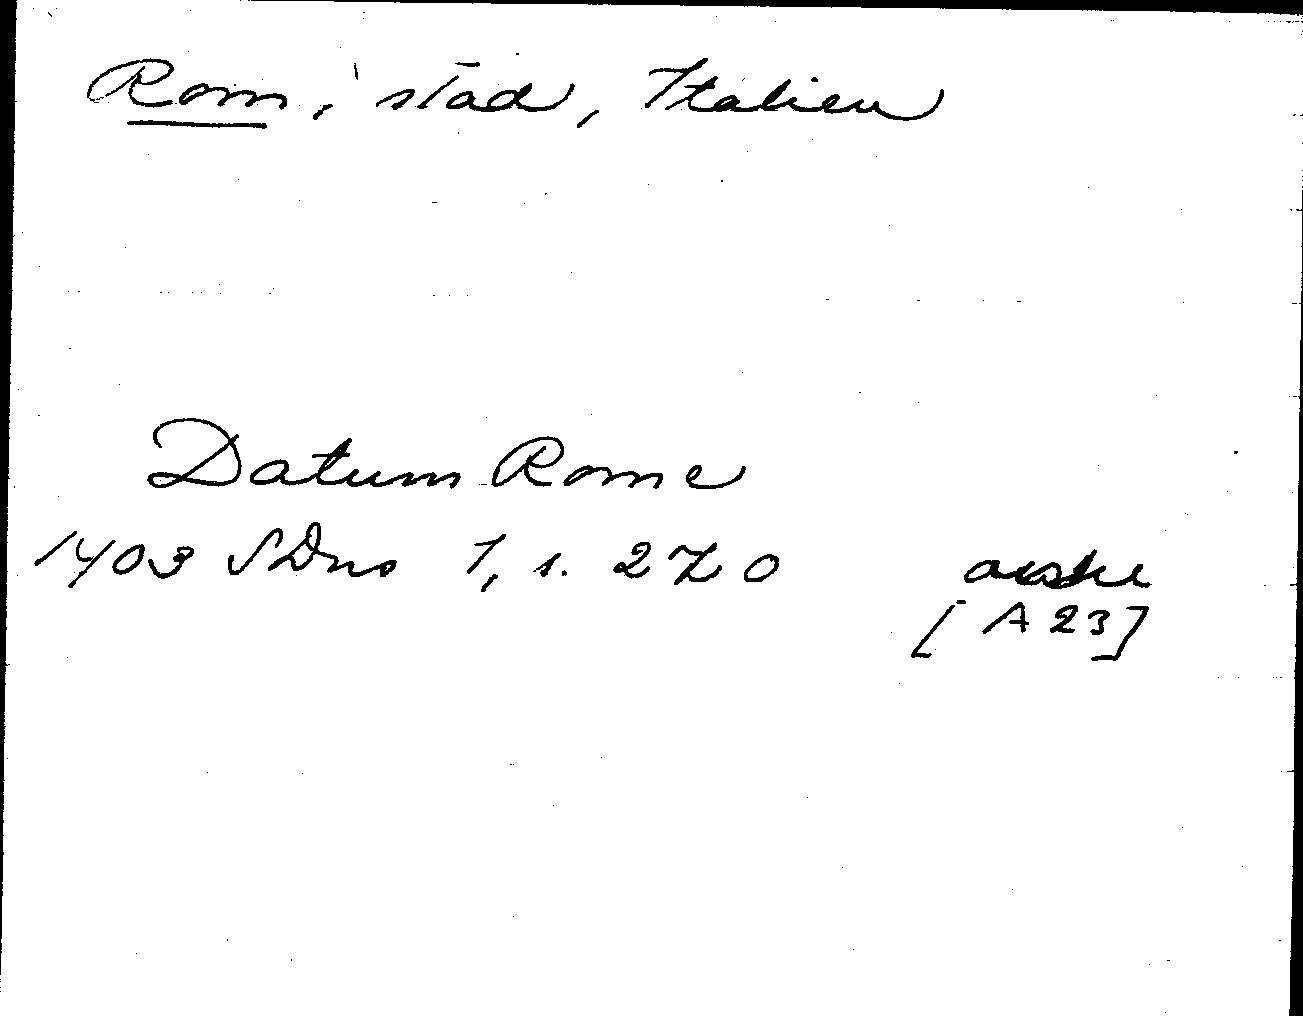 Rom, stad, Italien
Datum Rome
1403 SDns 1, s. 270 avskr
[A 23]